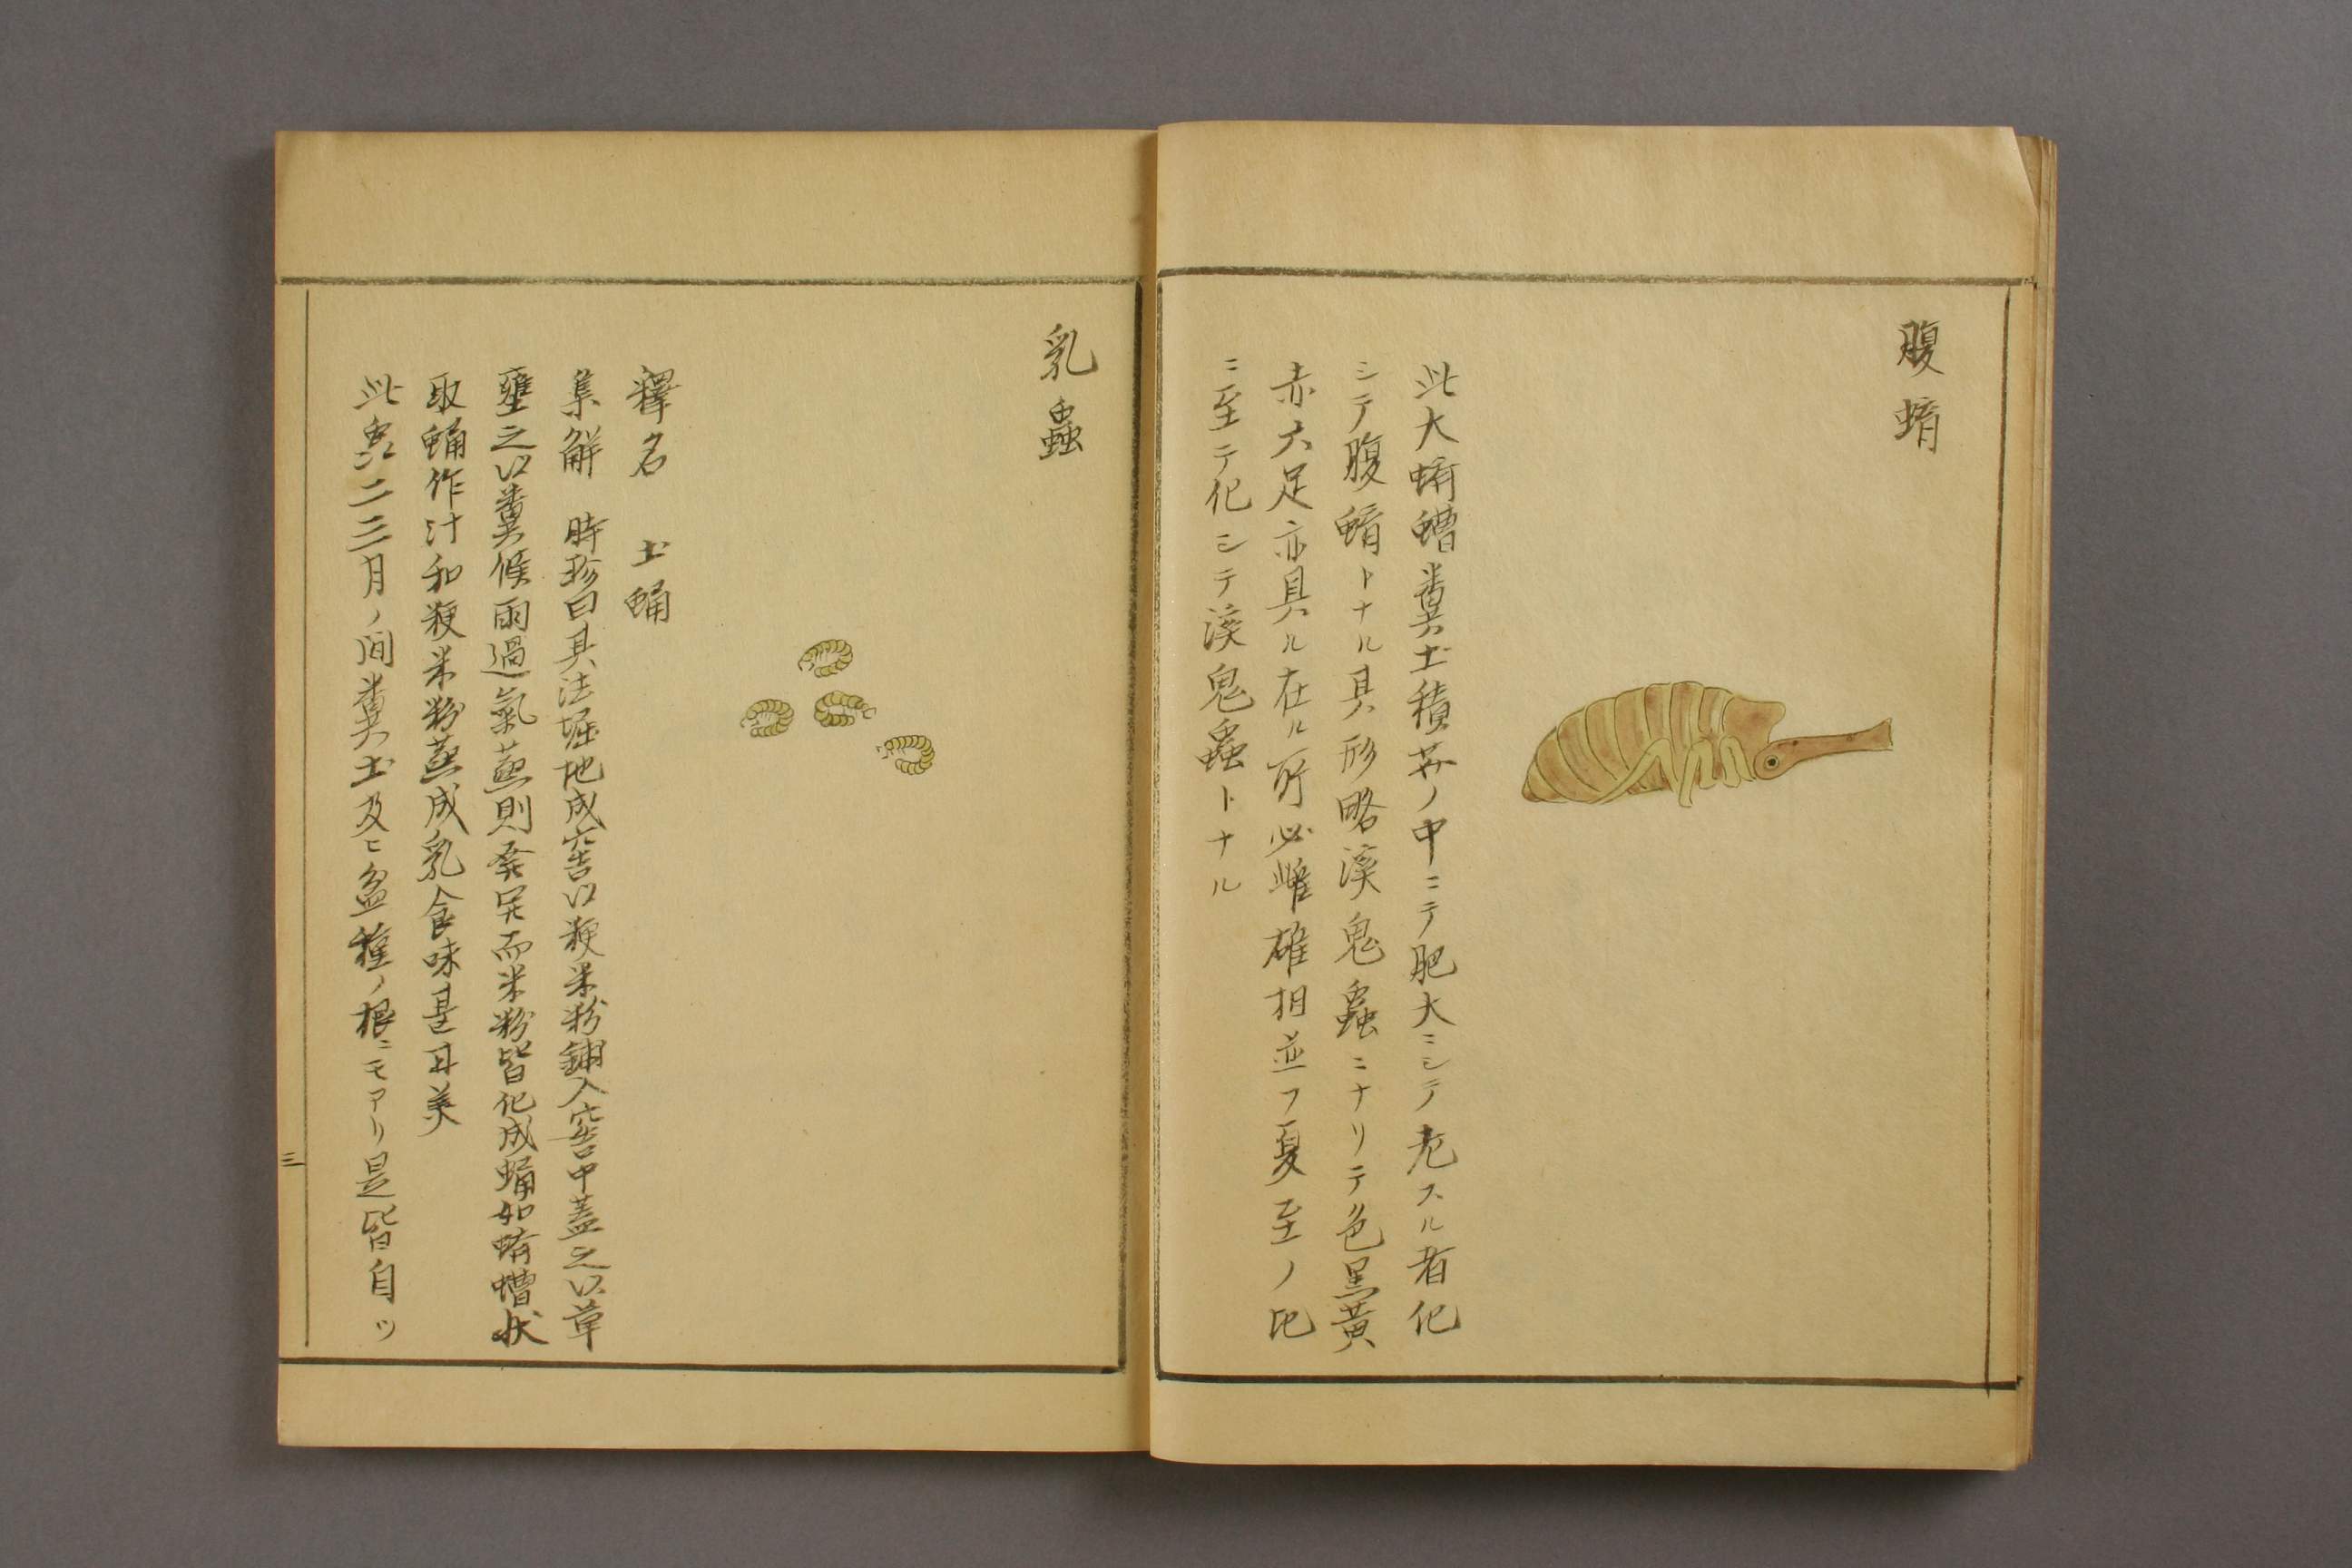 腹蜟
此大蠐螬糞土積芥ノ中ニテ肥大ニシテ老スル者化
シテ腹蜟トナル其形略溪鬼蟲ニナリテ色黒黄
赤六足亦具ル在ル所必雌雄相並フ夏至ノ比
ニ至テ化シテ溪鬼蟲トナル
乳蟲
釋名　土蛹
集解　時珍曰其法堀地成窖以粳米粉鋪入窖中蓋之以草
壅之以糞候雨過氣蒸則發開而米粉皆化成蛹如蠐螬狀
取蛹作汁和粳米粉蒸成乳食味甚甘美
此蟲二三月ノ間糞土及ヒ盆種ノ根ニモアリ是皆自ツ
三